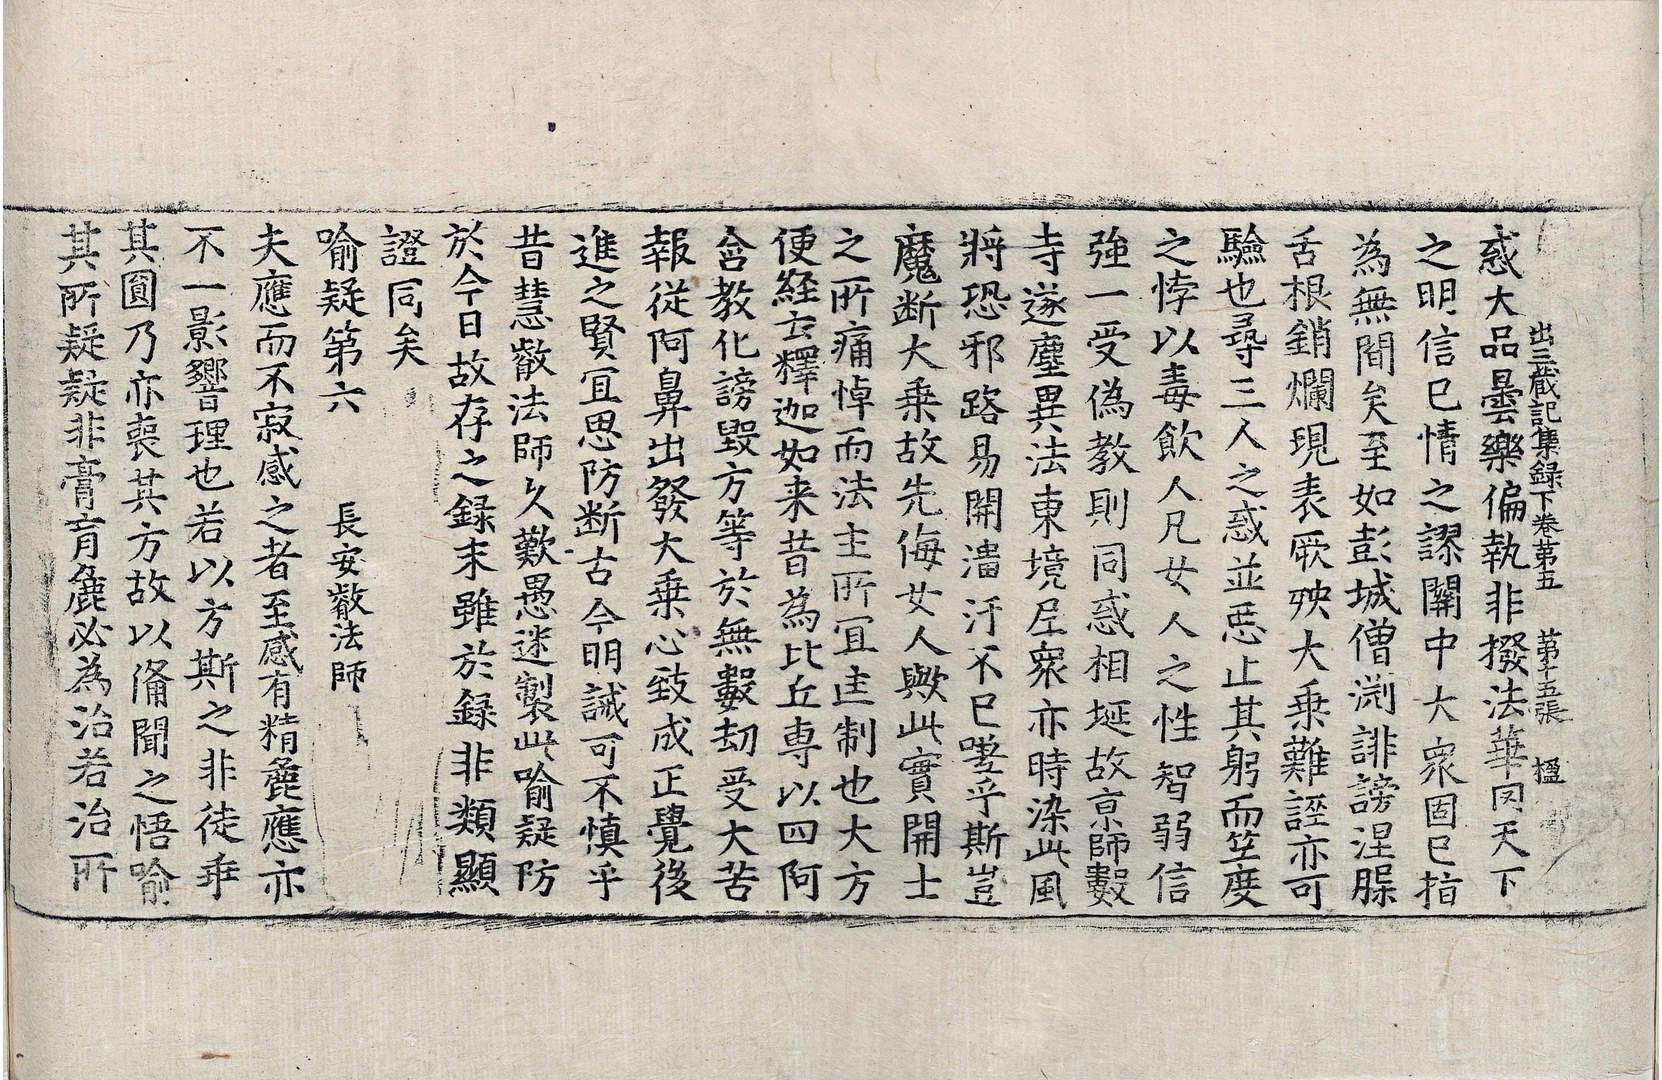 出三藏記集録下卷第五　第十五張　榲
惑大品曇樂偏執非撥法華罔天下
之明信己情之謬關中大衆固已指
為無間矣至如彭城僧渕誹謗涅脭
舌根銷爛現表厥殃大乗難誣亦可
驗也尋三人之惑並惡止其躬而笁度
之悖以毒飲人凡女人之性智弱信
強一受偽教則同惑相埏故京師數
寺遂塵異法東境尼衆亦時染此風
將恐邪路易開淄汙不已嗟乎斯豈
魔断大乗故先侮女人歟此實開士
之所痛悼而法主所冝匡制也大方
便経云釋迦如来昔為比丘専以四阿
含教化謗毀方等於無數劫受大苦
報従阿鼻出發大乗心致成正覺後
進之賢冝思防断古今明誡可不慎乎
昔慧叡法師久歎愚迷製此喻疑防
於今日故存之録末雖於録非類顯
證同矣
喻疑第六　　長安叡法師
夫應而不寂感之者至感有精麁應亦
不一影響理也若以方斯之非徒乖
其圓乃亦喪其方故以俻聞之悟喻
其所疑疑非膏肓麁必為治若治所